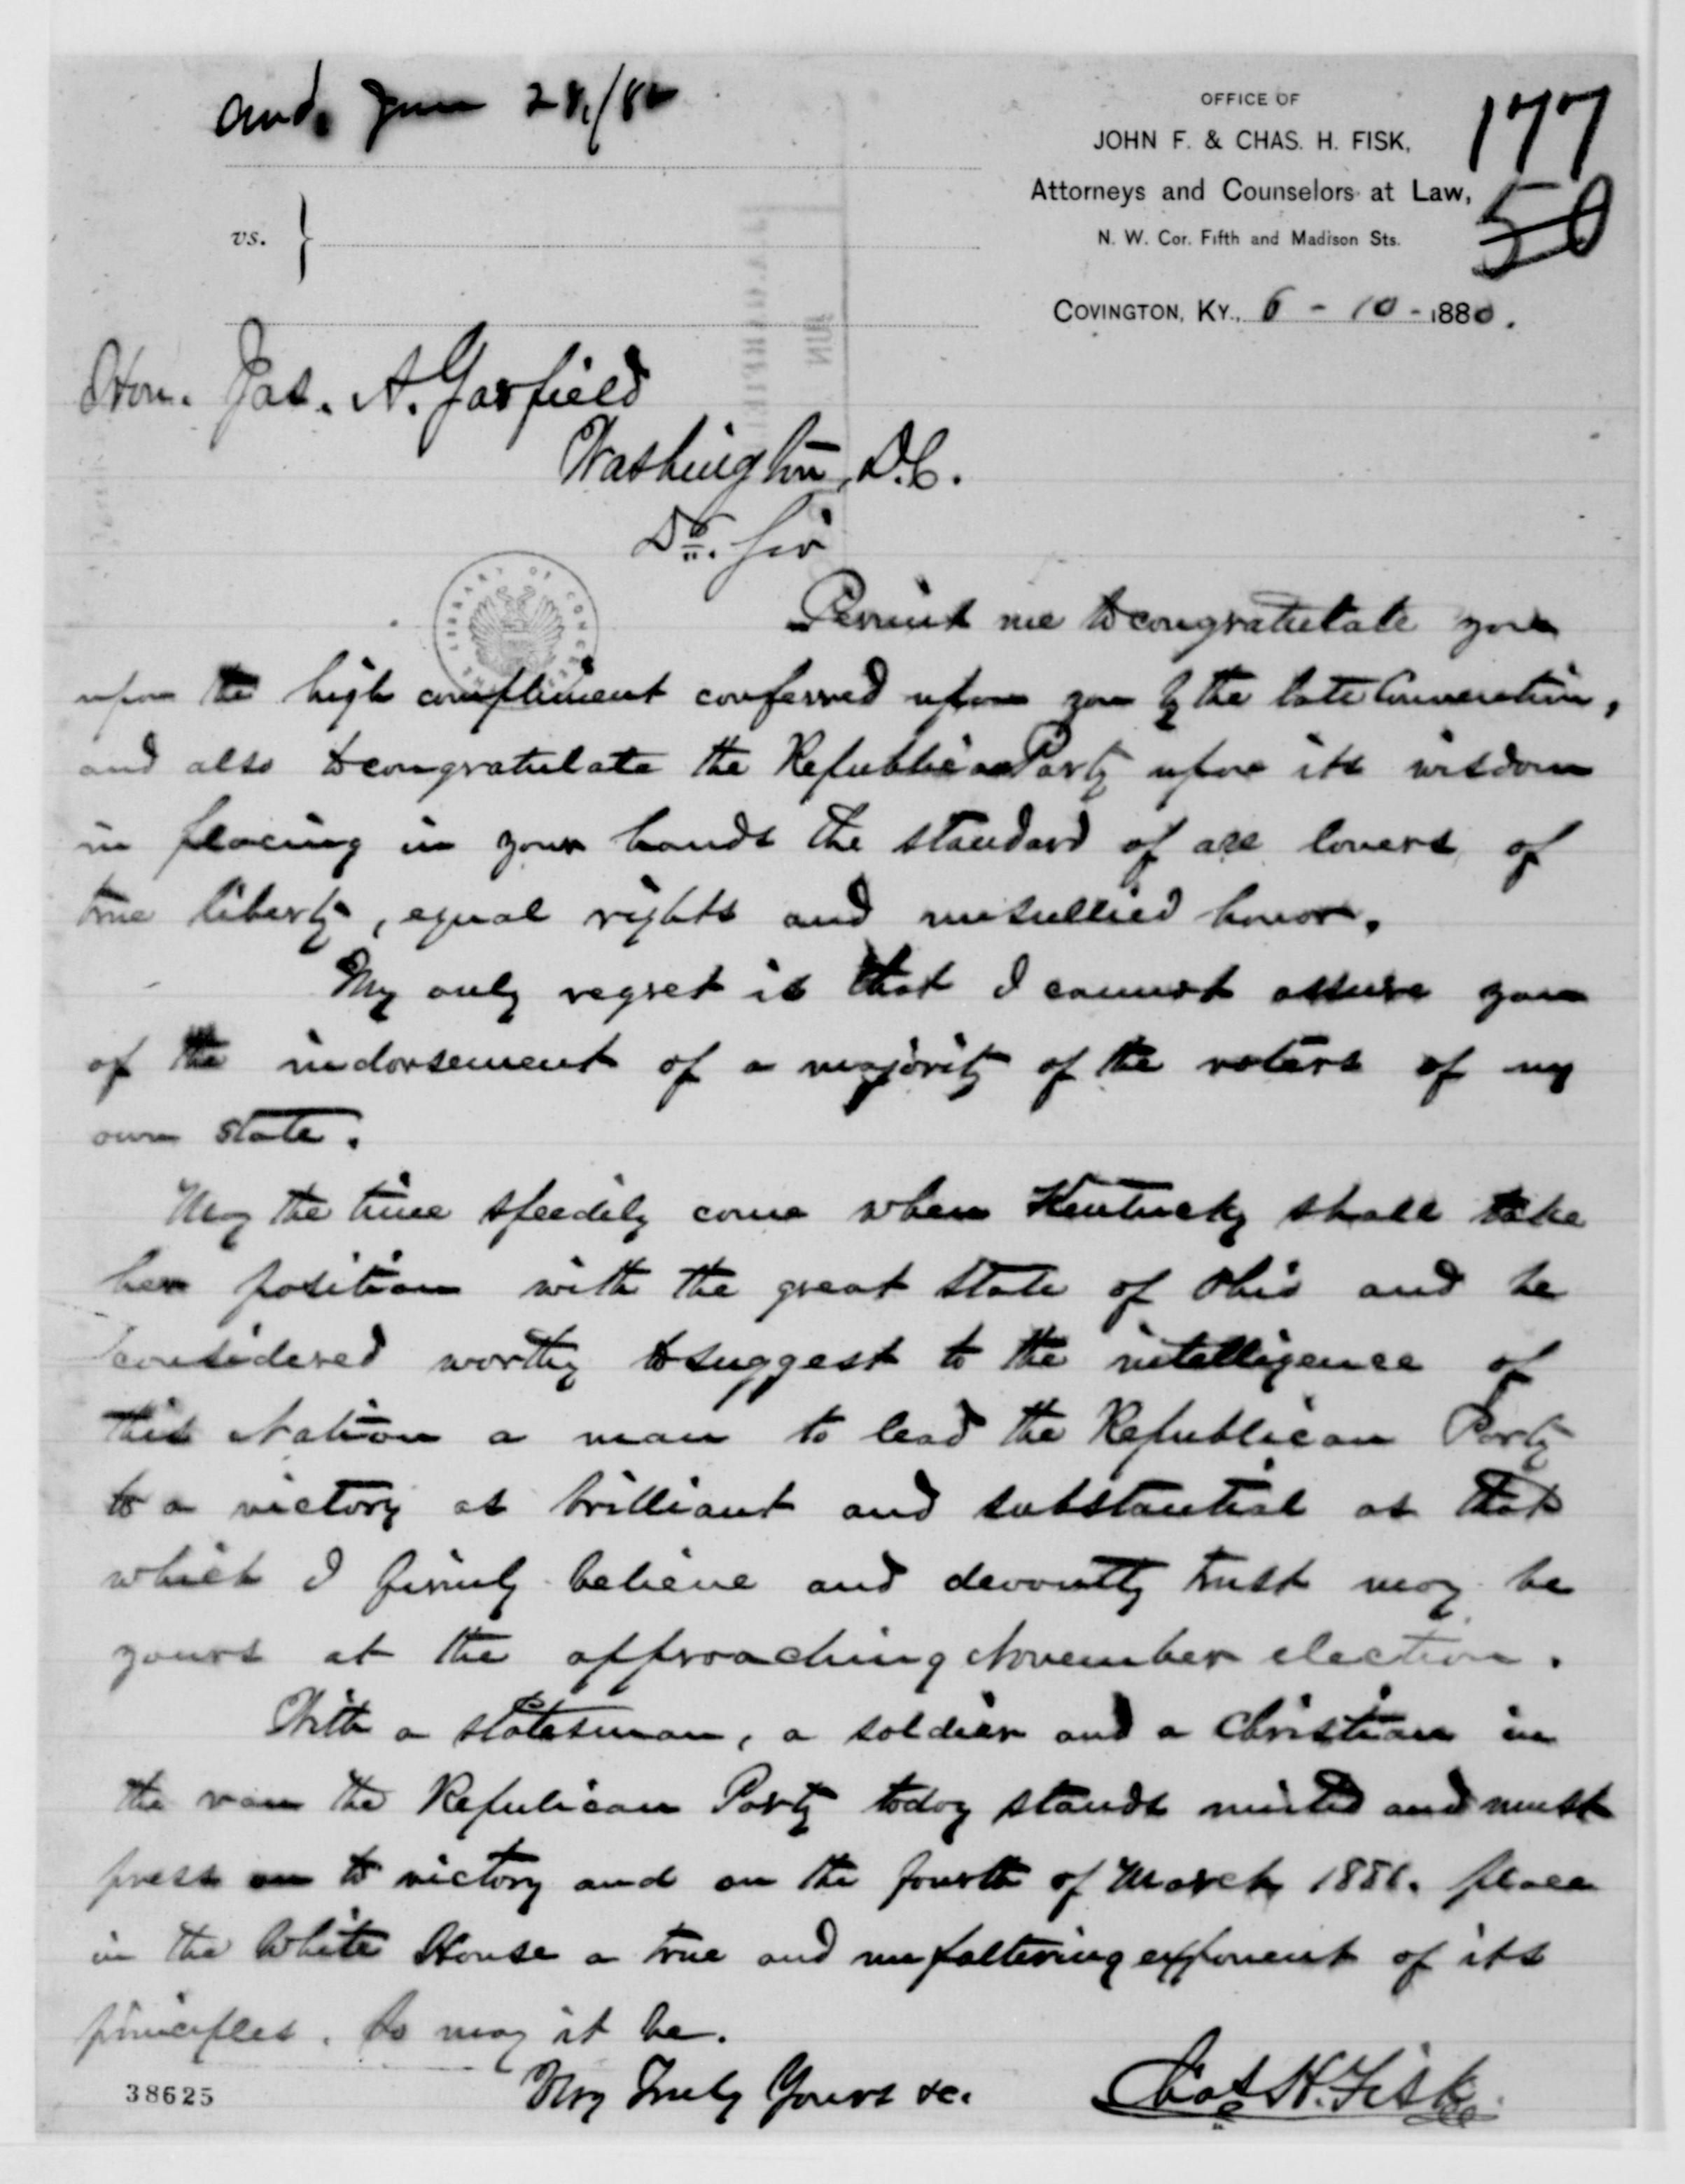 Ansd. June 28/80
OFFICE OF
JOHN F. & CHAS. H. FISK,
Attorneys and Counselors at Law,
N. W. Cor. Fifth and Madison Sts.
177
50
vs. }
COVINGTON, KY., 6 - 10 - 1880.
Hon. Jas. A. Garfield
Washington, D.C.
Dr. Sir
THE LIBRARY OF CONGRESS
Permit me to congratulate you
upon the high compliment conferred upon you by the late Convention,
and also to congratulate the Republican Party upon its wisdom
in placing in your hands the standard of all lovers of
true liberty, equal rights and unsullied honor.
My only regret is that I cannot assure you
of the indorsement of a majority of the voters of my
own state.
May the time speedily come when Kentucky shall take
her position with the great state of Ohio and be
considered worthy to suggest to the intelligence of
this Nation a man to lead the Republican Party
to a victory as brilliant and substantial as that
which I firmly believe and devoutly trust may be
yours at the approaching November election.
With a statesman, a soldier and a Christian in
the van the Republican Party today stands united and must
press on to victory and on the fourth of March, 1881. place
in the White House a true and unfaltering exponent of its
principles. So may it be.
Very Truly Yours &c. Chas H. Fisk
38625